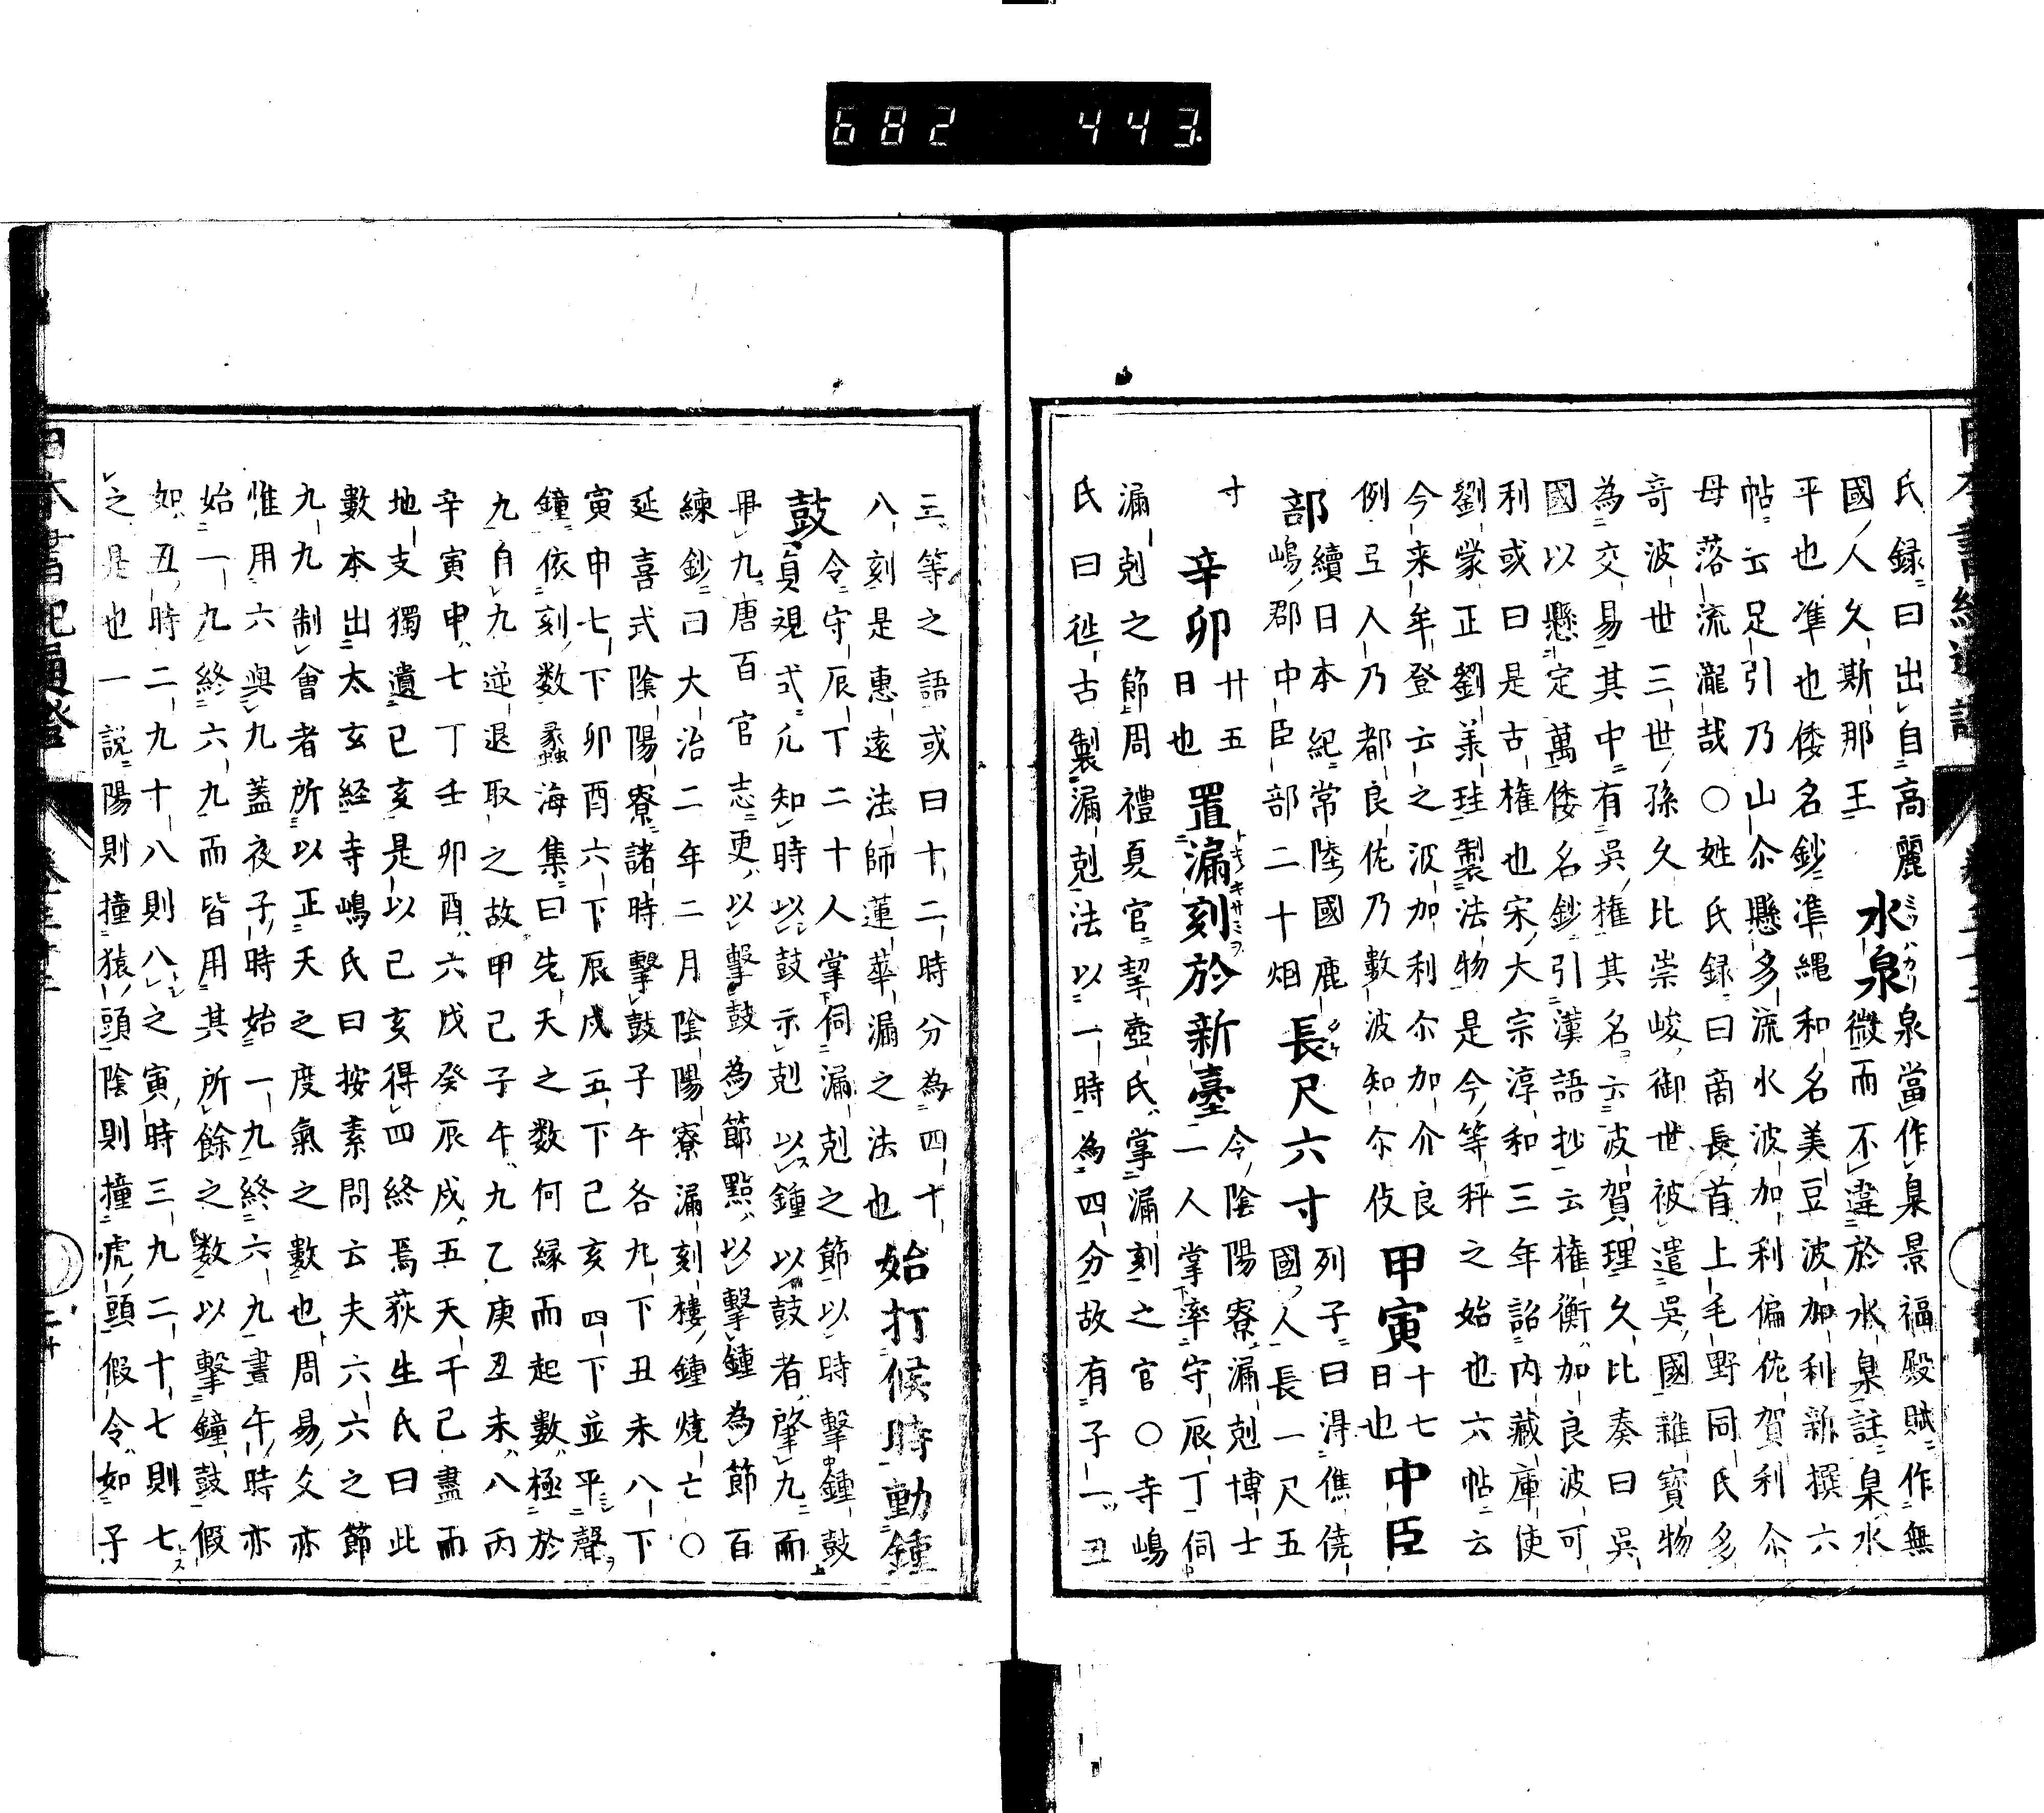 682 443
氏録曰出自高麗
國人久斯那王
水泉
ミツハカリ
泉當作臬景福殿賦作無
微而不違於水臬註臬水
平也準也倭名鈔準縄和名美豆波加利新撰六
帖云足引乃山尒懸多流水波加利偏佐賀利尒
母落流瀧哉○姓氏録曰商長首上毛野同氏多
竒波世三世孫久比崇峻御世被遣吳國雜寶物
為交易其中有吳權其名云波賀理久比奏曰吳
國以懸定萬倭名鈔引漢語抄云權衡加良波可
利或曰是古權也宋大宗淳和三年詔内藏庫使
劉蒙正劉羕珪製法物是今等秤之始也六帖云
今来牟登云之汳加利尒加介良
例弖人乃都良佐乃數波知尒伎
甲寅
十七日也
中臣部
續日本紀常陸國鹿
嶋郡中臣部二十烟
長尺六寸
タケ
列子曰淂僬僥
國人長一尺五
寸
辛卯
廿五日也
置漏刻於新臺
トキノキサミヲ
令陰陽寮漏剋博士
一人掌率守辰丁伺
漏剋之節周禮夏官挈壺氏掌漏刻之官○寺嶋
氏曰徃古製漏剋法以一時為四分故有子一丑
三等之語或曰十二時分為四十
八刻是惠遠法師蓮華漏之法也
始打候時動鍾鼓
令守辰丁二十人掌伺漏剋之節以時擊鍾鼓
貞覌式凢知時以鼓示剋以鍾以鼓者肇九而
畢九唐百官志更以擊鼓為節點以擊鍾為節百
練鈔曰大治二年二月陰陽寮漏刻樓鍾燒亡○
延喜式陰陽寮諸時擊鼓子午各九下丑未八下
寅申七下卯酉六下辰戌五下己亥四下並平聲
鐘依刻数蠡海集曰先天之数何縁而起數極於
九自九逆退取之故甲己子午九乙庚丑未八丙
辛寅申七丁壬卯酉六戊癸辰戌五天干己盡而
地支獨遺已亥是以己亥得四終焉荻生氏曰此
數本出太玄経寺嶋氏曰按素問云夫六六之節
九九制會者所以正天之度氣之數也周易爻亦
惟用六與九蓋夜子時始一九終六九晝午時亦
始一九終六九而皆用其所餘之数以擊鐘鼓假
如丑時二九十八則八之寅時三九二十七則七
之是也一説陽則撞猿頭陰則撞虎頭假令如子